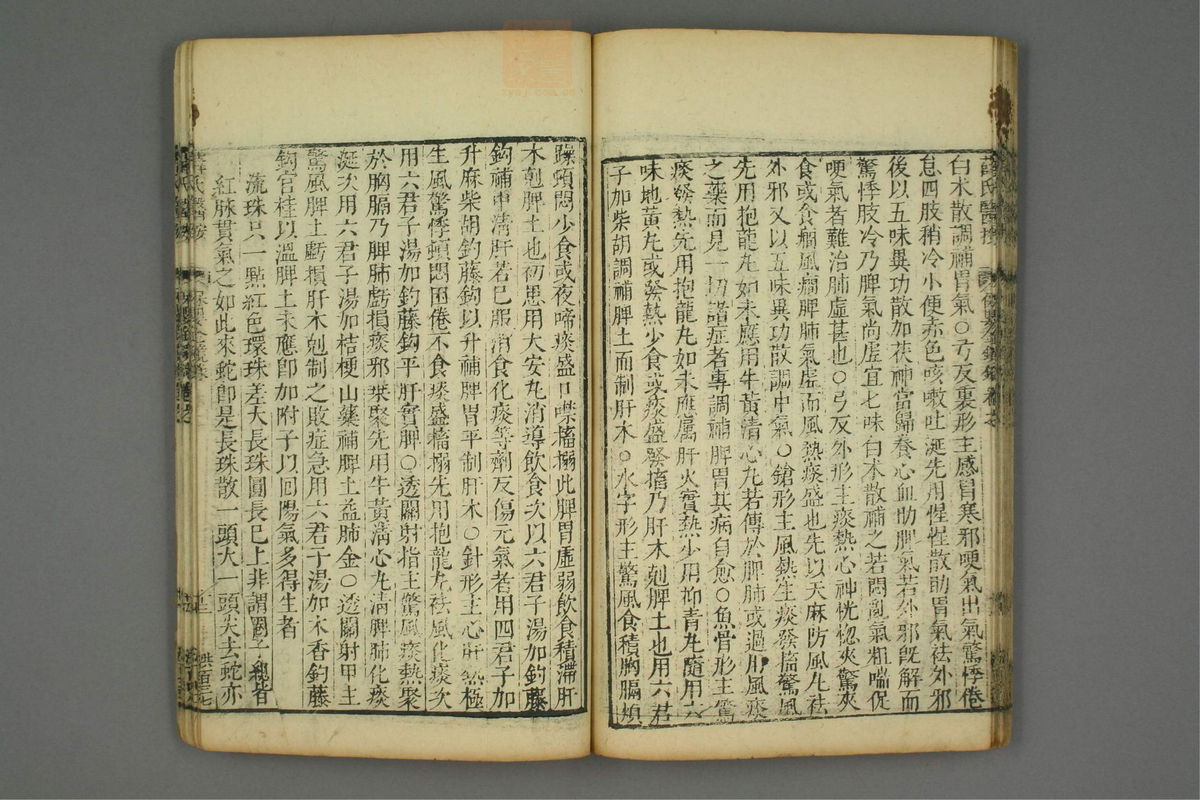 薛氏醫按
白朮散調補胃氣○弯反裏形主感冒寒邪哽氣出氣驚悸倦
怠四肢稍冷小便赤色咳嗽吐涎先用惺惺散助胃氣袪外邪
後以五味異功散加茯神當歸養心血助脾氣若外邪旣解而
驚悸肢冷乃脾氣尚虚宜七味白朮散補之若悶亂氣粗喘促
哽氣者難治肺虚甚也○弓反外形主痰熱心神恍惚夾驚夾
食或食癇風癇脾肺氣虚而風熱痰盛也先以天麻防風丸袪
外邪又以五味異功散調中氣○鎗形主風熱生痰發搐驚風
先用抱龍丸如未應用牛黃清心丸若傳於脾肺或過用風痰
之藥而見一切諸症者專調補脾胃其病自愈○魚骨形主驚
痰發熱先用抱龍丸如未應屬肝火實熱少用抑青丸隨用六
味地黃丸或發熱少食或痰盛發搐乃肝木剋脾土也用六君
子加柴胡調補脾土而制肝木○水字形主驚風食積胸膈煩
躁頓悶少食或夜啼痰盛口噤搐搦此脾胃虚弱飲食積滯肝
木剋脾土也初患用大安丸消導飲食次以六君子湯加鈎藤
鈎補中清肝若已服消食化痰等劑反傷元氣者用四君子加
升麻柴胡鈎藤鈎以升補脾胃平制肝木○針形主心肝熱極
生風驚悸頓悶困倦不食痰盛搐搦先用抱龍丸袪風化痰次
用六君子湯加鈎藤鈎平肝實脾○透關射指主驚風痰熱聚
於胸膈乃脾肺虧損痰邪乗聚先用牛黃淸心丸淸脾肺化痰
涎次用六君子湯加桔梗山藥補脾土益肺金○透關射甲主
驚風脾土虧損肝木剋制之敗症急用六君子湯加木香鈎藤
鈎官桂以溫脾土未應卽加附子以回陽氣多得生者
流珠只一點紅色環珠差大長珠圓長已上非謂圈子緫皆
紅脉貫氣之如此來蛇卽是長珠散一頭大一頭尖去蛇亦